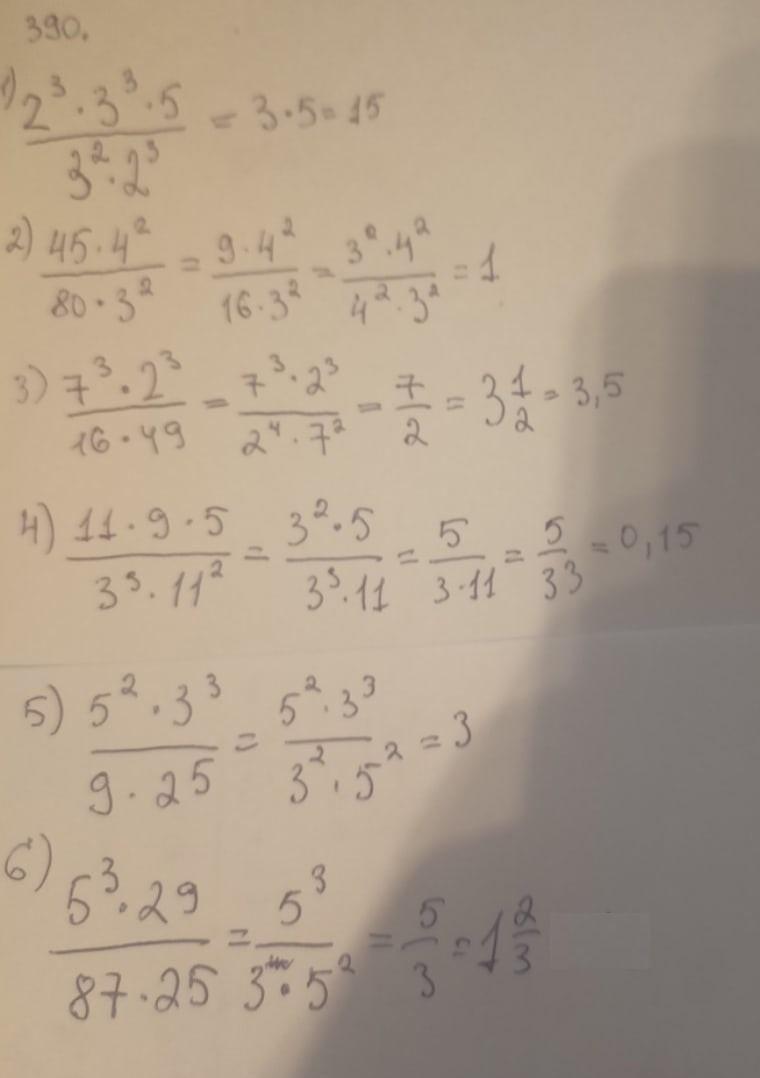 390.
1) \frac{2^3 · 3^3 · 5}{3^2 · 2^3} = 3 · 5 = 15
2) \frac{45 · 4^2}{80 · 3^2} = \frac{9 · 4^2}{16 · 3^2} = \frac{3^2 · 4^2}{4^2 · 3^2} = 1
3) \frac{7^3 · 2^3}{16 · 49} = \frac{7^3 · 2^3}{2^4 · 7^2} = \frac{7}{2} = 3\frac{1}{2} = 3,5
4) \frac{11 · 9 · 5}{3^3 · 11^2} = \frac{3^2 · 5}{3^3 · 11} = \frac{5}{3 · 11} = \frac{5}{33} = 0,15
5) \frac{5^2 · 3^3}{9 · 25} = \frac{5^2 · 3^3}{3^2 · 5^2} = 3
6) \frac{5^3 · 29}{87 · 25} = \frac{5^3}{3 · 5^2} = \frac{5}{3} = 1\frac{2}{3}